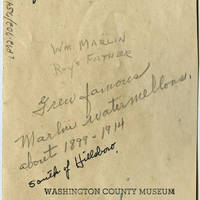 Wm MARLIN
Roy's FATHER
Grew famous
Marlin watermellons.
about 1899-1914
South of Hillsboro.
WASHINGTON COUNTY MUSEUM